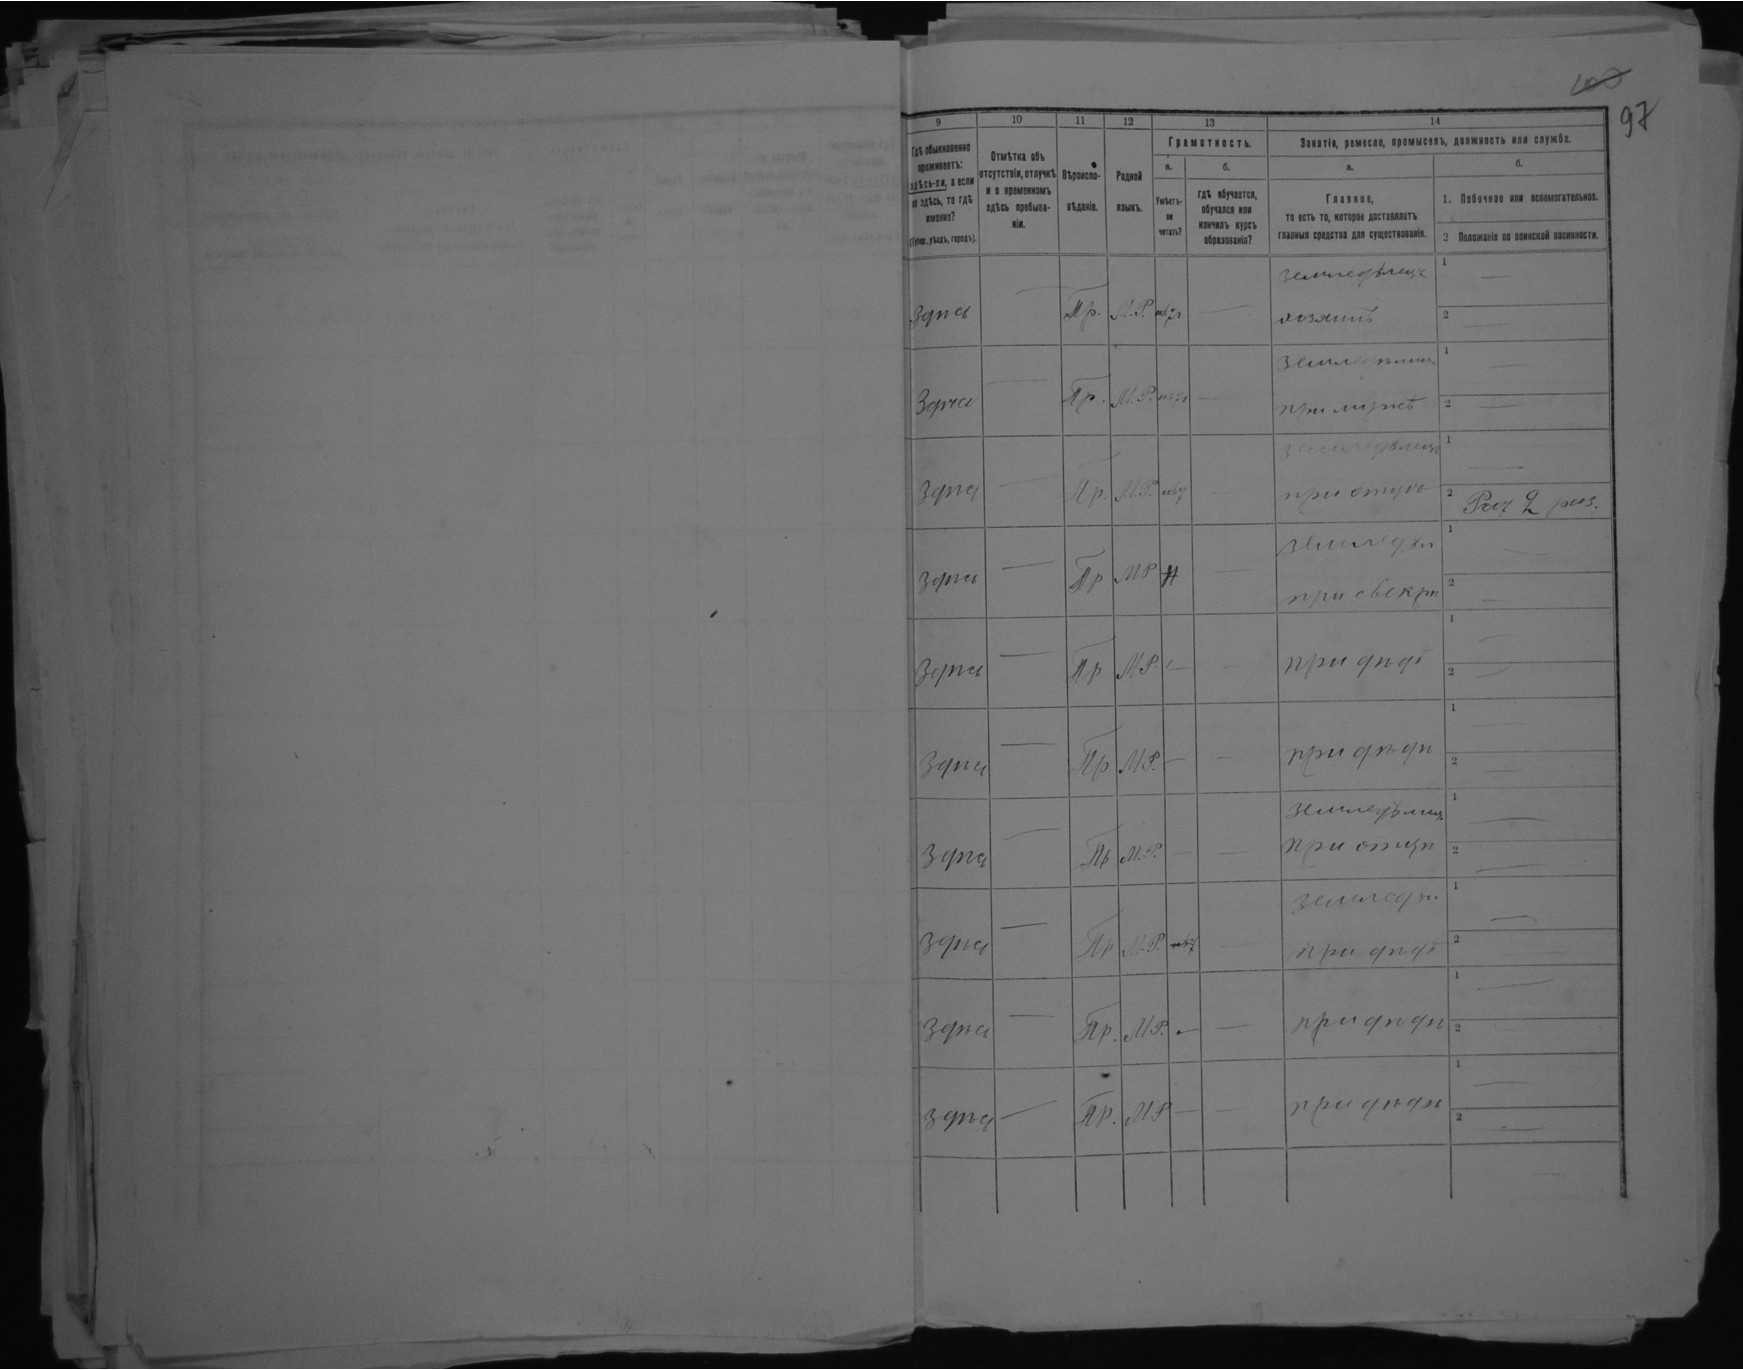 100
97
9 10 11 12 13 14
Гдѣ обыкновенно
проживаетъ:
здѣсь-ли, а если
не здѣсь, то гдѣ
именно?
(Губер., уѣздъ, городъ).
Отмѣтка объ
отсутствіи, отлучкѣ
и о временномъ
здѣсь пребыва-
ніи.
Вѣроиспо-
вѣданіе.
Родной
языкъ.
Грамотность.
а. б.
Умѣетъ-
ли
читать?
гдѣ обучается,
обучался или
кончилъ курсъ
образованія?
Занятіе, ремесло, промыселъ, должность или служба.
а. б.
Главное,
то есть то, которое доставляетъ
главныя средства для существованія.
1. Побочное или вспомогательное.
2 Положеніе по воинской повинности.
земледѣлецъ 1 —
Здѣсь — Пр. М.Р. — хозяинъ 2 —
1 —
Здѣсь — Пр. М.Р. — при 2 —
1 —
Здѣсь — Пр. М.Р. — при отцѣ 2 Рат 2 раз.
земледѣл 1 —
Здѣсь — Пр М Р Н — при свекрѣ 2 —
1 —
Здѣсь — Пр М.Р. — — при дѣдѣ 2 —
1 —
Здѣсь — Пр М.Р. — — при дѣдѣ 2 —
земледѣлец 1 —
Здѣсь — Пр М.Р. — — при отцѣ 2 —
земледѣл. 1 —
Здѣсь — Пр М.Р. — при дѣдѣ 2 —
1 —
Здѣсь — Пр. М.Р. — — при дѣдѣ 2 —
1 —
Здѣсь — Пр. М.Р — — при дѣдѣ 2 —